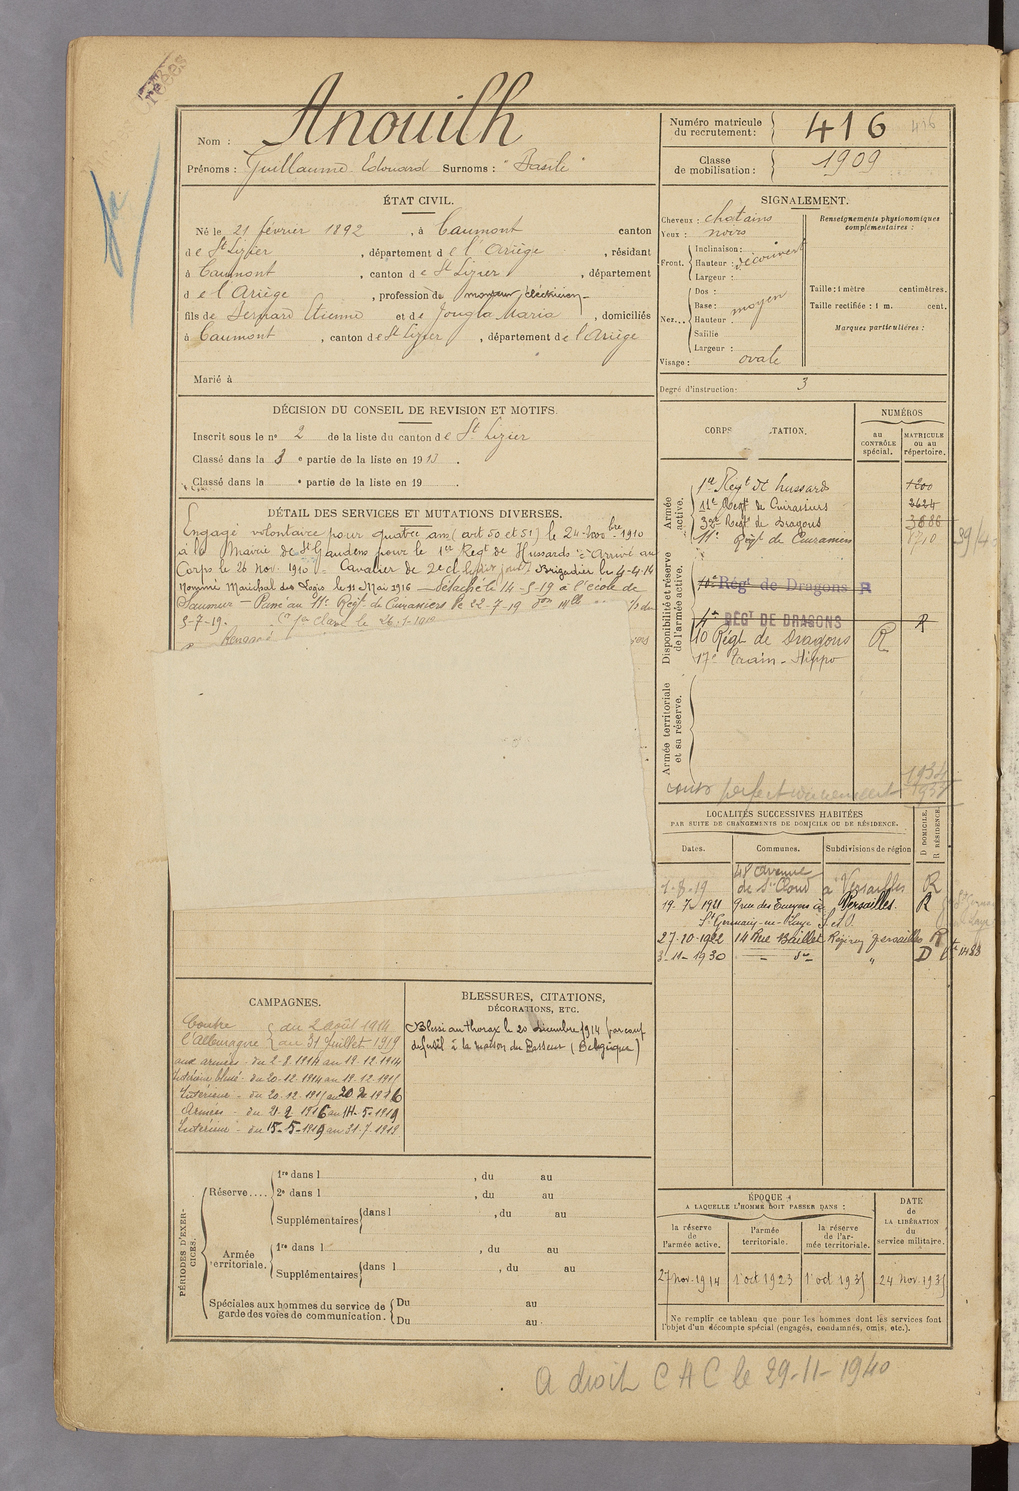 Nom : Anouilh
Prénoms : Guillaume Edouard Surnoms : "Basile"
Numéro matricule du recrutement : 416
416
Classe de mobilisation : 1909
ÉTAT CIVIL.
Né le 21 février 1892, à Caumont canton
de St Lizier, département de l'Ariège, résidant
à Caumont, canton de St Lizier, département
de l'Ariège, profession de monteur électricien
fils de Bernard Etienne et de Jougla Maria, domiciliés
à Caumont, canton de St Lizier, département de l'Ariège
Marié à
SIGNALEMENT.
Cheveux : chatains
Yeux : noirs
Front. Inclinaison :
Hauteur : découvert
Largeur :
Nez... Dos :
Base : moyen
Hauteur
Saillie
Largeur :
Visage : ovale
Renseignements physionomiques complémentaires :
Taille : 1 mètre centimètres.
Taille rectifiée : 1 m. cent.
Marques particulières :
Degré d'instruction : 3
DÉCISION DU CONSEIL DE REVISION ET MOTIFS.
Inscrit sous le n° 2 de la liste du canton de St Lizier
Classé dans la 3e partie de la liste en 1913.
Classé dans la e partie de la liste en 19
DÉTAIL DES SERVICES ET MUTATIONS DIVERSES.
Engagé volontaire pour quatre ans (art 50 et 51) le 24 nov bre 1910
à la Mairie de St Gaudens pour le 1er Regt de Hussards. Arrivé au
Corps le 26 Nov. 1910. Cavalier de 2e cl Brigadier le 4-4-14
Nommé Maréchal des Logis le 11 Mai 1916 — Détaché le 14-5-19 à l'école de
Saumur — Passé au 11e Régt de Cuirassiers le 22-7-19
5-7-19.
CORPS TATION.
NUMÉROS
au CONTRÔLE spécial.
MATRICULE ou au répertoire.
Armée active.
1er Regt de hussards 1200
11e Regt de Cuirassiers 2624
32e Regt de Dragons 3886
11e Régt de Cuirassiers 8710
Disponibilité et réserve de l'armée active.
Régt de Dragons R
4e RÉGT DE DRAGONS R
10 Régt de Dragons R
17e Train-Hippo
Armée territoriale et sa réserve.
cours perfectionnement 1934
LOCALITÉS SUCCESSIVES HABITÉES
PAR SUITE DE CHANGEMENTS DE DOMICILE OU DE RÉSIDENCE.
Dates. Communes. Subdivisions de région D DOMICILE. R RÉSIDENCE.
1-8-19 48 avenue de St Cloud à Versailles R
19-7-1921 9 rue des à Versailles. R
St Germain-en-Laye S. et O.
27-10-1922 14 Rue Baillet Versailles R
3-11-1930 — do — " D
CAMPAGNES.
Contre l'Allemagne { du 2 août 1914
au 31 Juillet 1919
aux armées - du 2-8-1914 au 19-12-1914
Intérieur blessé - du 20-12-1914 au 19-12-1915
Intérieur - du 20-12-1915 au 20-2-1916
Armées - du 21-2-1916 au 14-5-1919
Intérieur - du 15-5-1919 au 31-7-1919
BLESSURES, CITATIONS,
DÉCORATIONS, ETC.
Blessé au thorax le 20 décembre 1914 par coup
de fusil à la maison du Passeur (Belgique)
PÉRIODES D'EXERCICES.
Réserve.... 1re dans l , du au
2e dans l , du au
Supplémentaires dans l , du au
Armée territoriale. 1re dans l , du au
Supplémentaires dans l , du au
Spéciales aux hommes du service de garde des voies de communication. Du au
Du au
ÉPOQUE
A LAQUELLE L'HOMME DOIT PASSER DANS :
la réserve de l'armée active.
l'armée territoriale.
la réserve de l'armée territoriale.
DATE de LA LIBÉRATION du service militaire.
27 nov. 1914 1 oct 1923 1 oct 1935 24 nov. 1935
Ne remplir ce tableau que pour les hommes dont les services font
l'objet d'un décompte spécial (engagés, condamnés, omis, etc.).
A droit C A C le 29-11-1940